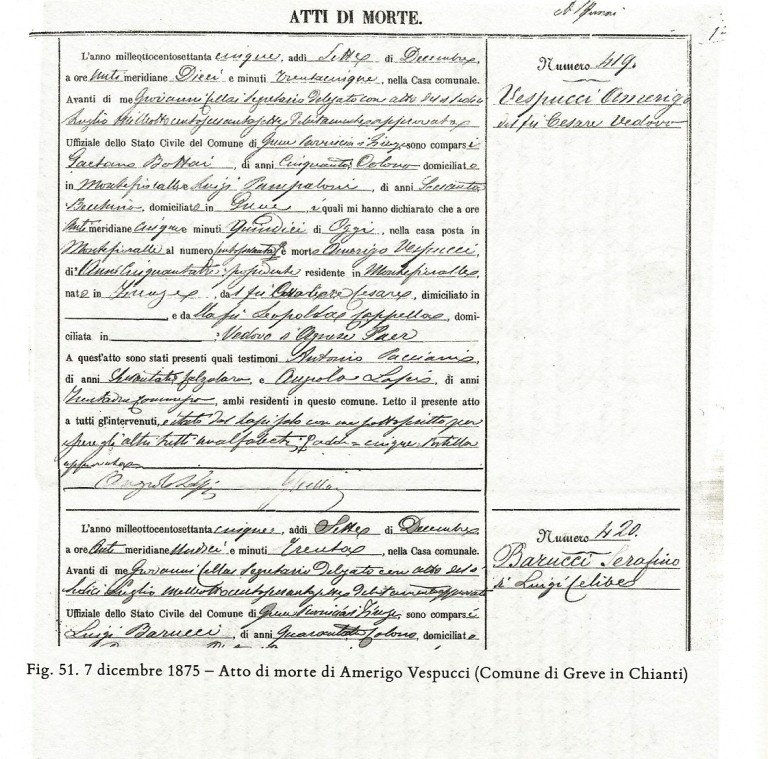 ATTI DI MORTE.
L'anno milleottocentosettanta cinque, addi Sette di Decembre,
a ore Anti meridiane Dieci e minuti Trentacinque, nella Casa comunale.
Avanti di me Giovanni Sellai Segretario Delegato con atto del sedici
Luglio milleottocentosessantasette debitamente approvato
Uffiziale dello Stato Civile del Comune di Greve Provincia di Firenze sono comparsi
Gaetano Bottai, di anni Cinquanta Colono domiciliato
in Montefioralle e Luigi Pampaloni, di anni Sessanta
Becchino, domiciliato in Greve, i quali mi hanno dichiarato che a ore
Anti meridiane cinque e minuti Quindici di Oggi, nella casa posta in
Montefioralle al numero è morto Amerigo Vespucci,
di Anni Cinquantatre possidente residente in Montefioralle,
nato in Firenze, dal fù Cavaliere Cesare, domiciliato in
, e da lla fù Leopolda Cappelli, domi-
ciliata in : Vedovo d'Agnese
A quest'atto sono stati presenti quali testimoni Antonio
di anni Settanta Calzolaro, e Angiolo Lapi, di anni
, ambi residenti in questo comune. Letto il presente atto
a tutti gl'intervenuti, è stato dal Lapi solo con me sottoscritto per
essere gli altri tutti analfabeti
approvata
Angiolo Lapi Sellai
Numero 419.
Vespucci Amerigo
del fù Cesare Vedovo
L'anno milleottocentosettanta cinque, addi Sette di Decembre
a ore Anti meridiane Undici e minuti Trenta, nella Casa comunale.
Avanti di me Giovanni Sellai Segretario Delegato con atto del se
dici Luglio milleottocentosessantasette debitamente approvato
Uffiziale dello Stato Civile del Comune di Greve Provincia di Firenze sono comparsi
Luigi Barucci, di anni Quaranta Colono, domiciliato
Numero 420.
Barucci Serafino
di Luigi Celibe
Fig. 51. 7 dicembre 1875 – Atto di morte di Amerigo Vespucci (Comune di Greve in Chianti)